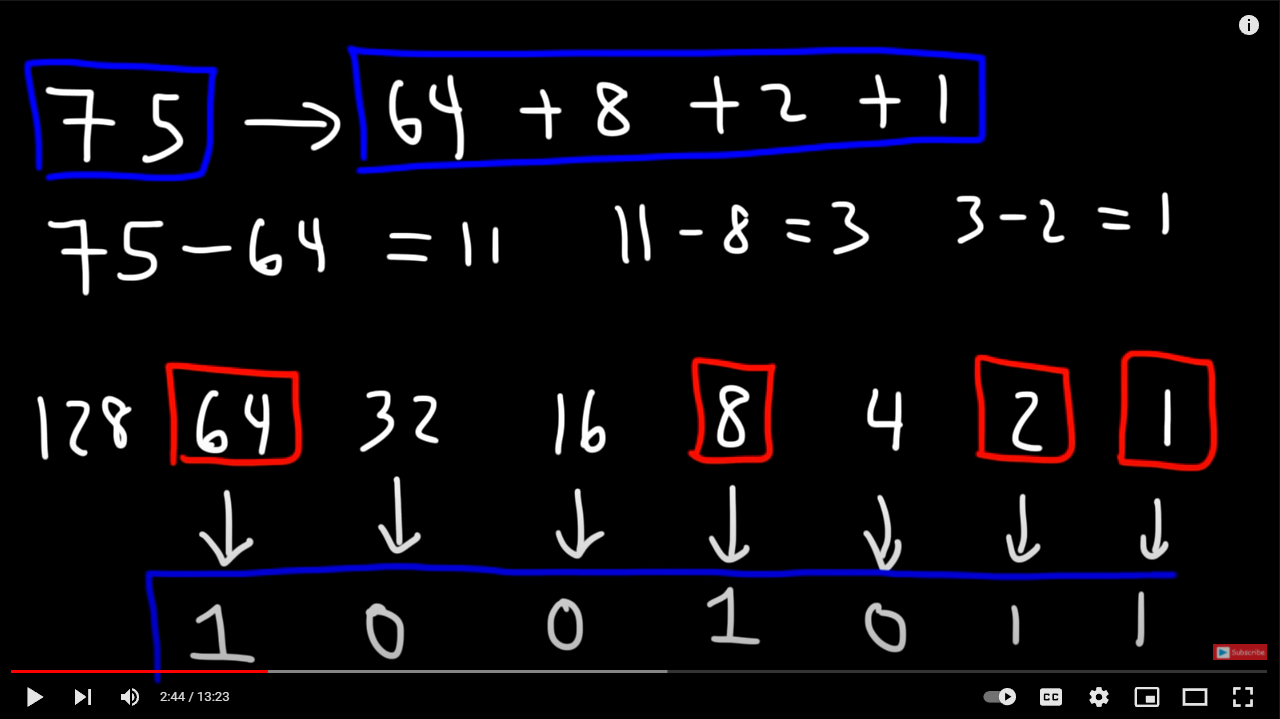 75 → 64 + 8 + 2 + 1
75 - 64 = 11 11 - 8 = 3 3 - 2 = 1
128 64 32 16 8 4 2 1
1 0 0 1 0 1 1
Subscribe
2:44 / 13:23
CC